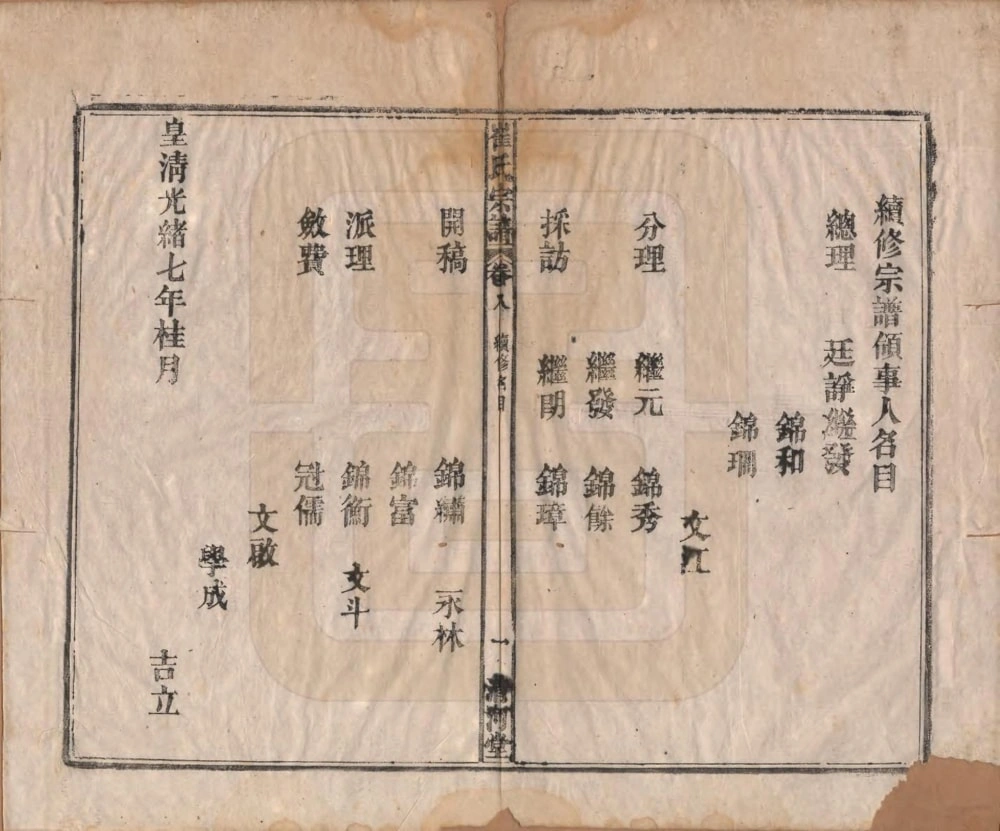 續修宗譜領事人名目
總理 廷諍 繼發
錦和
錦珊
文江
分理 繼元 錦秀
繼發 錦餘
採訪 繼明 錦璋
崔氏宗譜 卷八 續修名目 一 清河堂
開稿 錦繡 永林
錦富
派理 錦衡 文斗
斂費 冠儒
文啟
學成
皇清光緒七年桂月 吉立